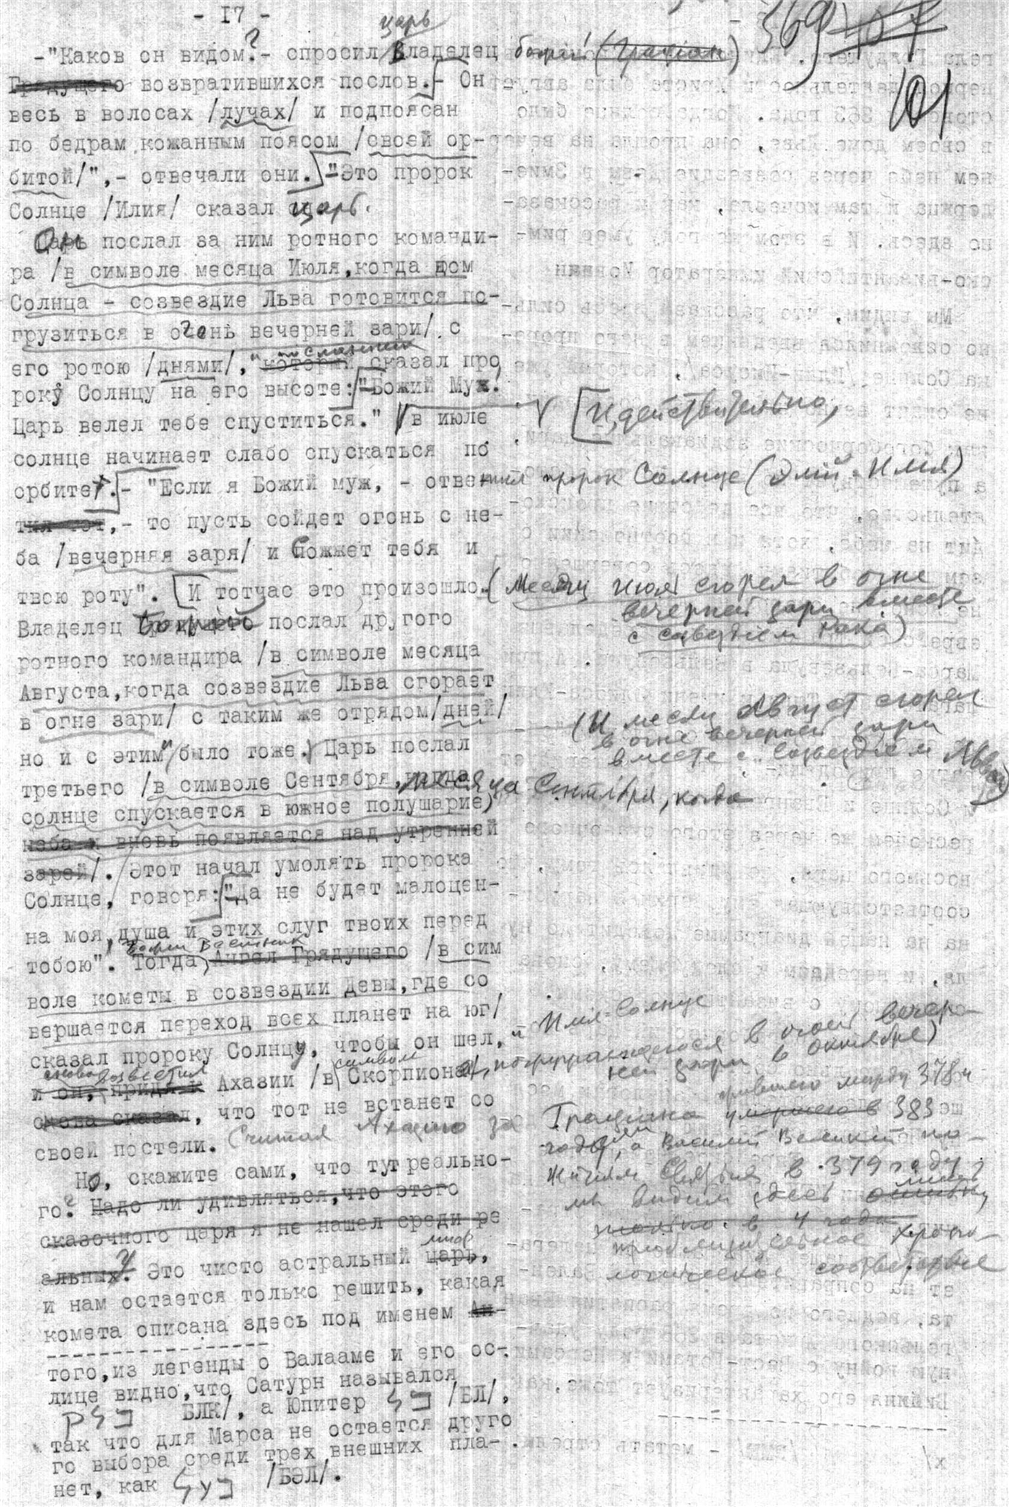 - 17 -
царь
369
101
-"Каков он видом?- спросил Владелец божий (Грациан)
Грядущего возвратившихся послов.- Он
весь в волосах /лучах/ и подпоясан
по бедрам кожанным поясом /своей ор-
битой/",- отвечали они. "Это пророк
Солнце /Илия/ сказал царь.
Он послал за ним ротного команди-
ра /в символе месяца Июля,когда дом
Солнца - созвездие Льва готовится по-
грузиться в огень вечерней зари/ с
его ротою /днями/, "который сказал про
року Солнцу на его высоте: "Божий Муж!
Царь велел тебе спуститься." И действительно,
в июле
солнце начинает слабо спускаться по
орбите.- "Если я Божий муж, - ответил пророк Солнце (Элий-Илия)
тил тот,- то пусть сойдет огонь с не-
ба /вечерняя заря/ и сожжет тебя и
твою роту". И тотчас это произошло. (Месяц июля сгорел в огне
вечерней зари вместе
с созвездием Рака)
Владелец послал другого
ротного командира /в символе месяца
Августа,когда созвездие Льва сгорает
в огне зари/ с таким же отрядом/дней/
но и с этим было тоже. (И месяц Август сгорел
в огне вечерней зари
вместе с созвездием Льва)
Царь послал
третьего /в символе Сентября, когда месяца Сентября, когда
солнце спускается в южное полушарие)
неба и вновь появляется над утренней
зарей/. Этот начал умолять пророка
Солнце, говоря: "Да не будет малоцен-
на моя душа и этих слуг твоих перед
тобою". Тогда Ангел Грядущего /в сим
Божий Вестник
воле кометы в созвездии Девы,где со
вершается переход всех планет на юг/
сказал пророку Солнцу, чтобы он шел," Илия-Солнце
и он, придя к Ахазии /в Скорпиона/, погружающегося в огонь вечер-
ней зари в октябре)
символ
снова сказал, что тот не встанет со
своей постели. Считая Ахазию за Грациана умершего в 383
году, а Василий Великий по-
жития в 379 году,
мы видим здесь
только в 4 года
приблизительное хроно-
логическое соответствие
Но, скажите сами, что тут реально-
го? Надо ли удивляться,что этого
сказочного царя я не нашел среди ре
альных? Это чисто астральный царь,
миф
и нам остается только решить, какая
комета описана здесь под именем Ан-
------------------
того,из легенды о Валааме и его ос-
лице видно,что Сатурн назывался
БЛК/, а Юпитер /БЛ/,
так что для Марса не остается друго
го выбора среди трех внешних пла-
нет, как /БЭЛ/.